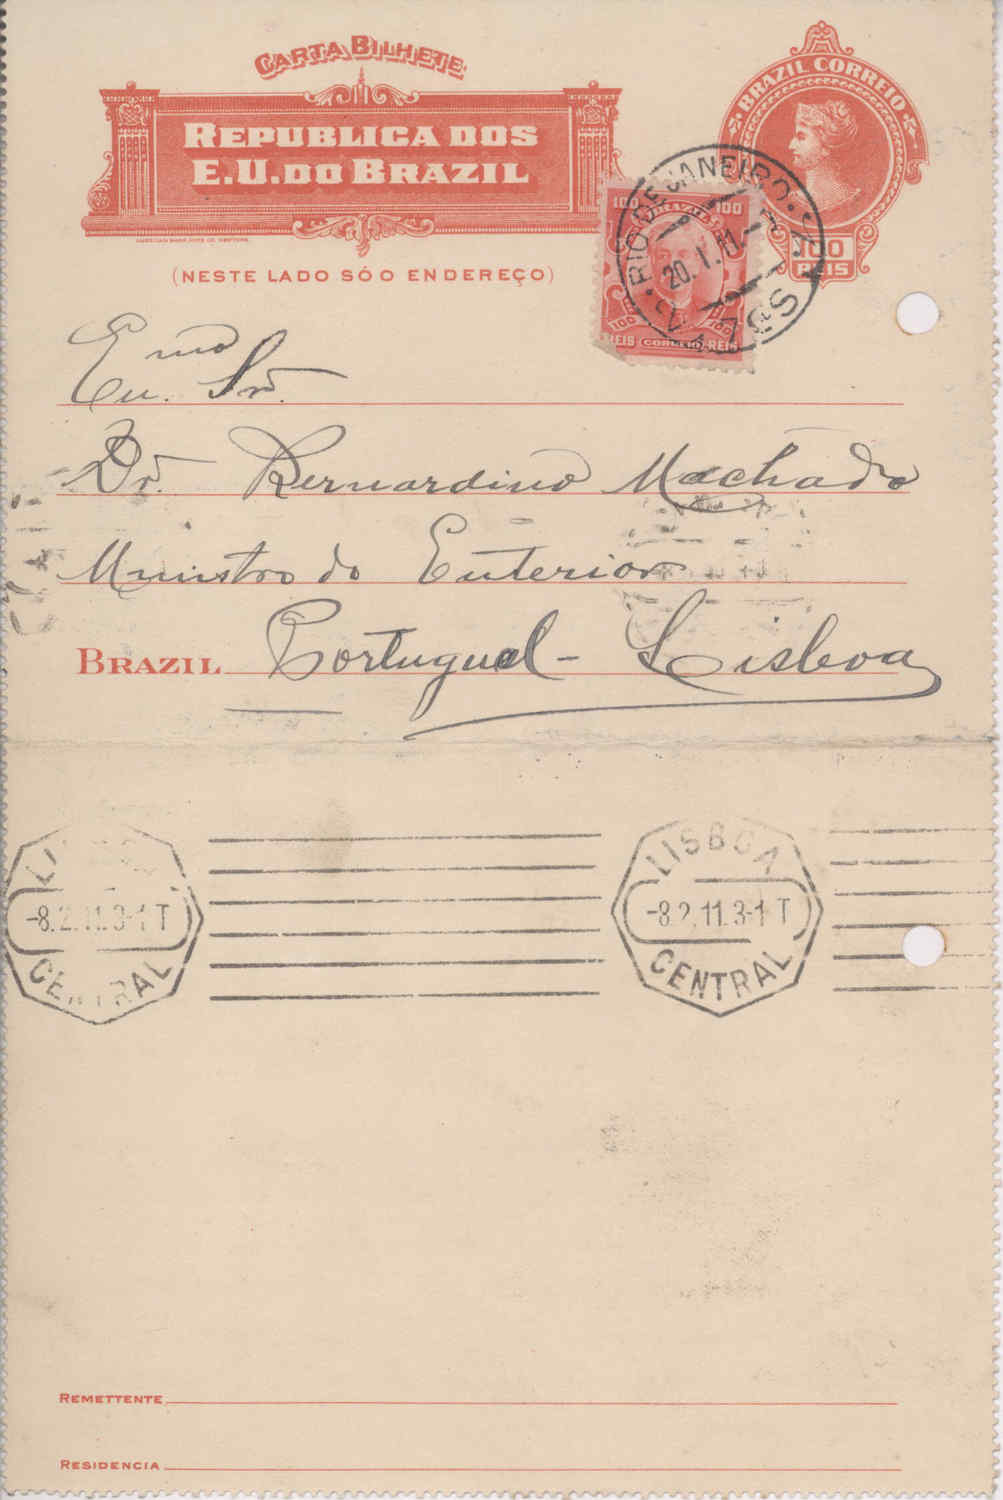 CARTA BILHETE
REPUBLICA DOS
E.U. DO BRAZIL
AMERICAN BANK NOTE CO. NEW YORK.
(NESTE LADO SÓ O ENDEREÇO)
BRAZIL CORREIO
100
REIS
100 BRAZIL 100
100 100
REIS CORREIO REIS
RIO DE JANEIRO
20.1.11
Exmo. Snr.
Dr. Bernardino Machado
Ministro do Enterior
BRAZIL Portugual - Lisboa
LISBOA
-8.2.11.3-1 T
CENTRAL
LISBOA
-8.2.11.3-1 T
CENTRAL
REMETTENTE
RESIDENCIA